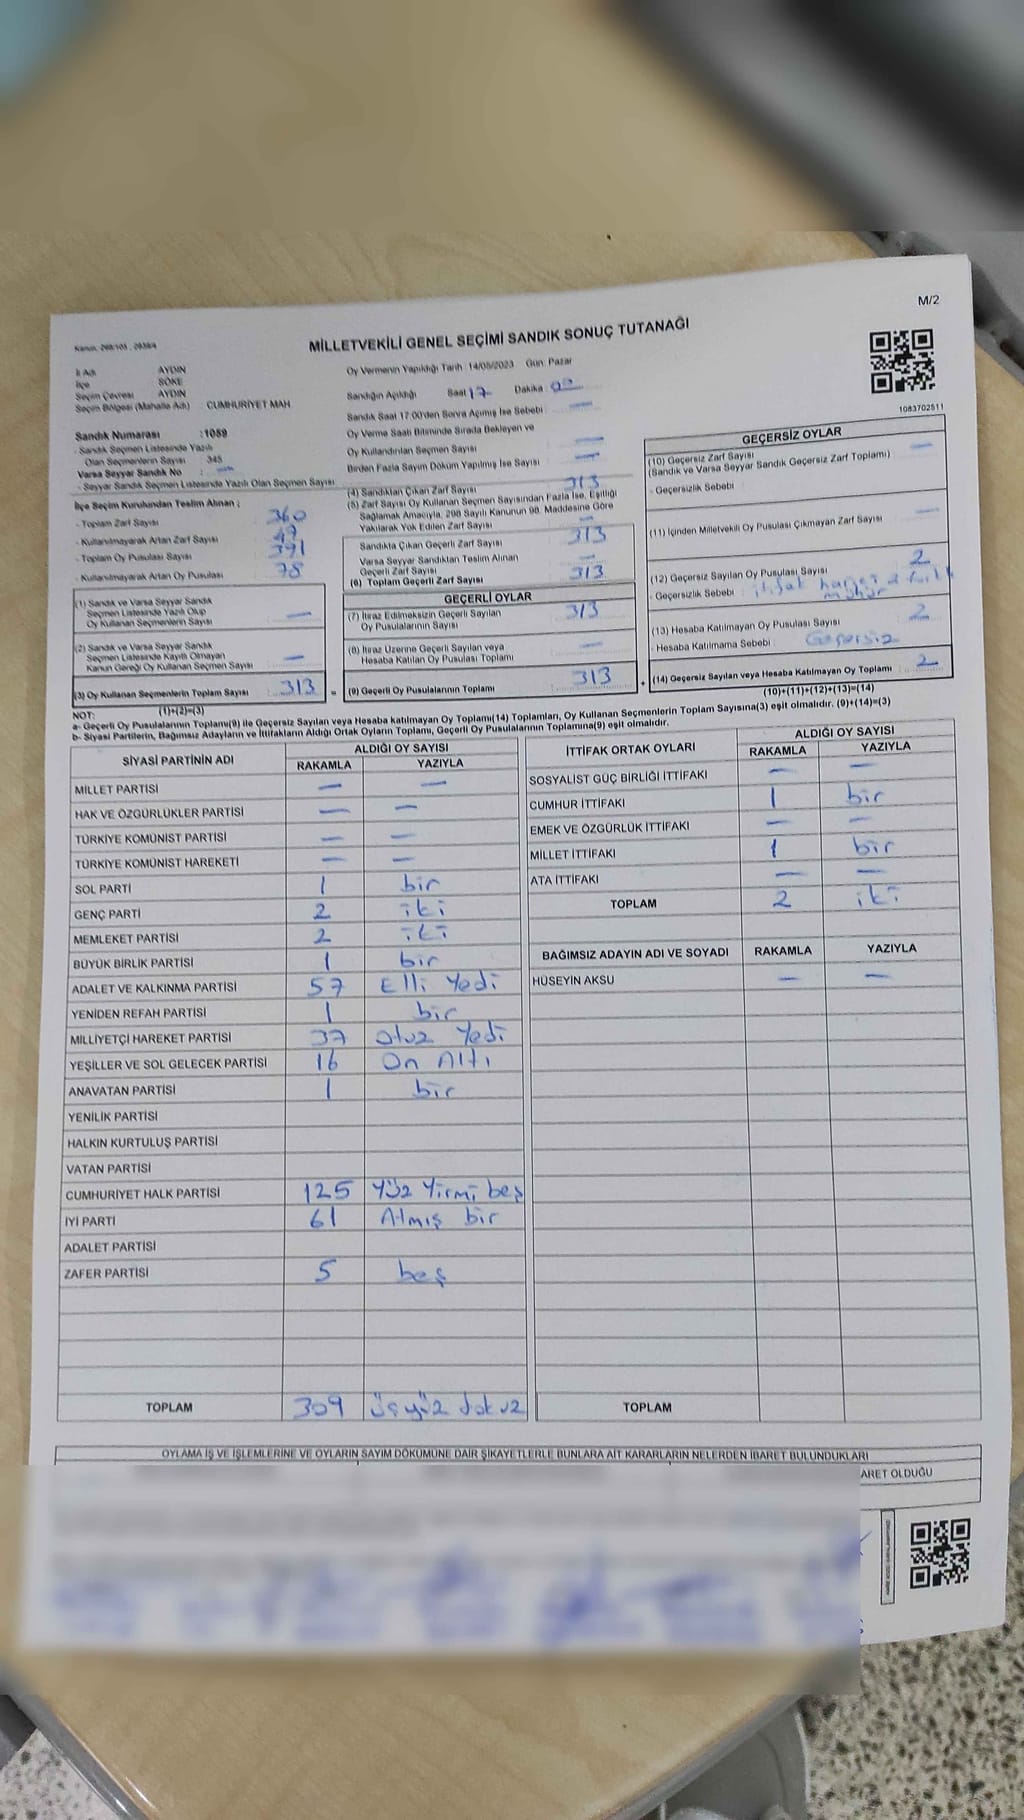 M/2
MİLLETVEKİLİ GENEL SEÇİMİ SANDIK SONUÇ TUTANAĞI
İl Adı AYDIN
İlçe SÖKE
Seçim Çevresi AYDIN
Seçim Bölgesi (Mahalle Adı) CUMHURİYET MAH
Sandık Numarası :1059
- Sandık Seçmen Listesinde Yazılı
Olan Seçmenlerin Sayısı : 345
Varsa Seyyar Sandık No : —
- Seyyar Sandık Seçmen Listesinde Yazılı Olan Seçmen Sayısı
Oy Vermenin Yapıldığı Tarih : 14/05/2023 Gün: Pazar
Sandığın Açıldığı Saat 17 Dakika : 00
Sandık Saat 17:00'den Sonra Açılmış İse Sebebi : —
Oy Verme Saati Bitiminde Sırada Bekleyen ve
Oy Kullandırılan Seçmen Sayısı —
Birden Fazla Sayım Döküm Yapılmış İse Sayısı —
1083702511
İlçe Seçim Kurulundan Teslim Alınan ;
- Toplam Zarf Sayısı 360
- Kullanılmayarak Artan Zarf Sayısı 47
- Toplam Oy Pusulası Sayısı 391
- Kullanılmayarak Artan Oy Pusulası 78
(1) Sandık ve Varsa Seyyar Sandık
Seçmen Listesinde Yazılı Olup
Oy Kullanan Seçmenlerin Sayısı —
(2) Sandık ve Varsa Seyyar Sandık
Seçmen Listesinde Kayıtlı Olmayan
Kanun Gereği Oy Kullanan Seçmen Sayısı —
(3) Oy Kullanan Seçmenlerin Toplam Sayısı : 313 =
(1)+(2)=(3)
(4) Sandıktan Çıkan Zarf Sayısı 313
(5) Zarf Sayısı Oy Kullanan Seçmen Sayısından Fazla İse, Eşitliği
Sağlamak Amacıyla, 298 Sayılı Kanunun 98. Maddesine Göre
Yakılarak Yok Edilen Zarf Sayısı —
Sandıkta Çıkan Geçerli Zarf Sayısı 313
Varsa Seyyar Sandıktan Teslim Alınan
Geçerli Zarf Sayısı —
(6) Toplam Geçerli Zarf Sayısı 313
GEÇERLİ OYLAR
(7) İtiraz Edilmeksizin Geçerli Sayılan
Oy Pusulalarının Sayısı 313
(8) İtiraz Üzerine Geçerli Sayılan veya
Hesaba Katılan Oy Pusulası Toplamı —
(9) Geçerli Oy Pusulalarının Toplamı 313 +
GEÇERSİZ OYLAR
(10) Geçersiz Zarf Sayısı —
(Sandık ve Varsa Seyyar Sandık Geçersiz Zarf Toplamı)
- Geçersizlik Sebebi :
(11) İçinden Milletvekili Oy Pusulası Çıkmayan Zarf Sayısı —
(12) Geçersiz Sayılan Oy Pusulası Sayısı 2
- Geçersizlik Sebebi : ittifak harici 2 farklı
mühür
(13) Hesaba Katılmayan Oy Pusulası Sayısı 2
- Hesaba Katılmama Sebebi : Geçersiz
(14) Geçersiz Sayılan veya Hesaba Katılmayan Oy Toplamı 2
(10)+(11)+(12)+(13)=(14)
NOT:
a- Geçerli Oy Pusulalarının Toplamı(9) ile Geçersiz Sayılan veya Hesaba katılmayan Oy Toplamı(14) Toplamları, Oy Kullanan Seçmenlerin Toplam Sayısına(3) eşit olmalıdır. (9)+(14)=(3)
b- Siyasi Partilerin, Bağımsız Adayların ve İttifakların Aldığı Ortak Oyların Toplamı, Geçerli Oy Pusulalarının Toplamına(9) eşit olmalıdır.
SİYASİ PARTİNİN ADI ALDIĞI OY SAYISI
RAKAMLA YAZIYLA
MİLLET PARTİSİ — —
HAK VE ÖZGÜRLÜKLER PARTİSİ — —
TÜRKİYE KOMÜNİST PARTİSİ — —
TÜRKİYE KOMÜNİST HAREKETİ — —
SOL PARTİ 1 bir
GENÇ PARTİ 2 iki
MEMLEKET PARTİSİ 2 iki
BÜYÜK BİRLİK PARTİSİ 1 bir
ADALET VE KALKINMA PARTİSİ 57 Elli Yedi
YENİDEN REFAH PARTİSİ 1 bir
MİLLİYETÇİ HAREKET PARTİSİ 37 Otuz Yedi
YEŞİLLER VE SOL GELECEK PARTİSİ 16 On Altı
ANAVATAN PARTİSİ 1 bir
YENİLİK PARTİSİ
HALKIN KURTULUŞ PARTİSİ
VATAN PARTİSİ
CUMHURİYET HALK PARTİSİ 125 Yüz Yirmi beş
İYİ PARTİ 61 Atmış bir
ADALET PARTİSİ
ZAFER PARTİSİ 5 beş
TOPLAM 309 üçyüz dokuz
İTTİFAK ORTAK OYLARI ALDIĞI OY SAYISI
RAKAMLA YAZIYLA
SOSYALİST GÜÇ BİRLİĞİ İTTİFAKI — —
CUMHUR İTTİFAKI 1 bir
EMEK VE ÖZGÜRLÜK İTTİFAKI — —
MİLLET İTTİFAKI 1 bir
ATA İTTİFAKI — —
TOPLAM 2 iki
BAĞIMSIZ ADAYIN ADI VE SOYADI RAKAMLA YAZIYLA
HÜSEYİN AKSU — —
TOPLAM
OYLAMA İŞ VE İŞLEMLERİNE VE OYLARIN SAYIM DÖKÜMÜNE DAİR ŞİKAYETLERLE BUNLARA AİT KARARLARIN NELERDEN İBARET BULUNDUKLARI
ARET OLDUĞU